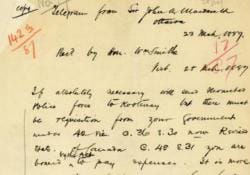 Copy Telegram from Sir John A Macdonald
Ottawa
23 Mch, 1887.
1423
87
Recd by Hon. Wm Smithe
Feb. 25 Mch, 1887
If absolutely necessary will send Mounted
Police force to Kootenay but there must
be requisition from your Government
under C. 36 S. 30 now Revised
Stat. of Canada C. 48 S 31 you are
bound to pay expenses. It is more